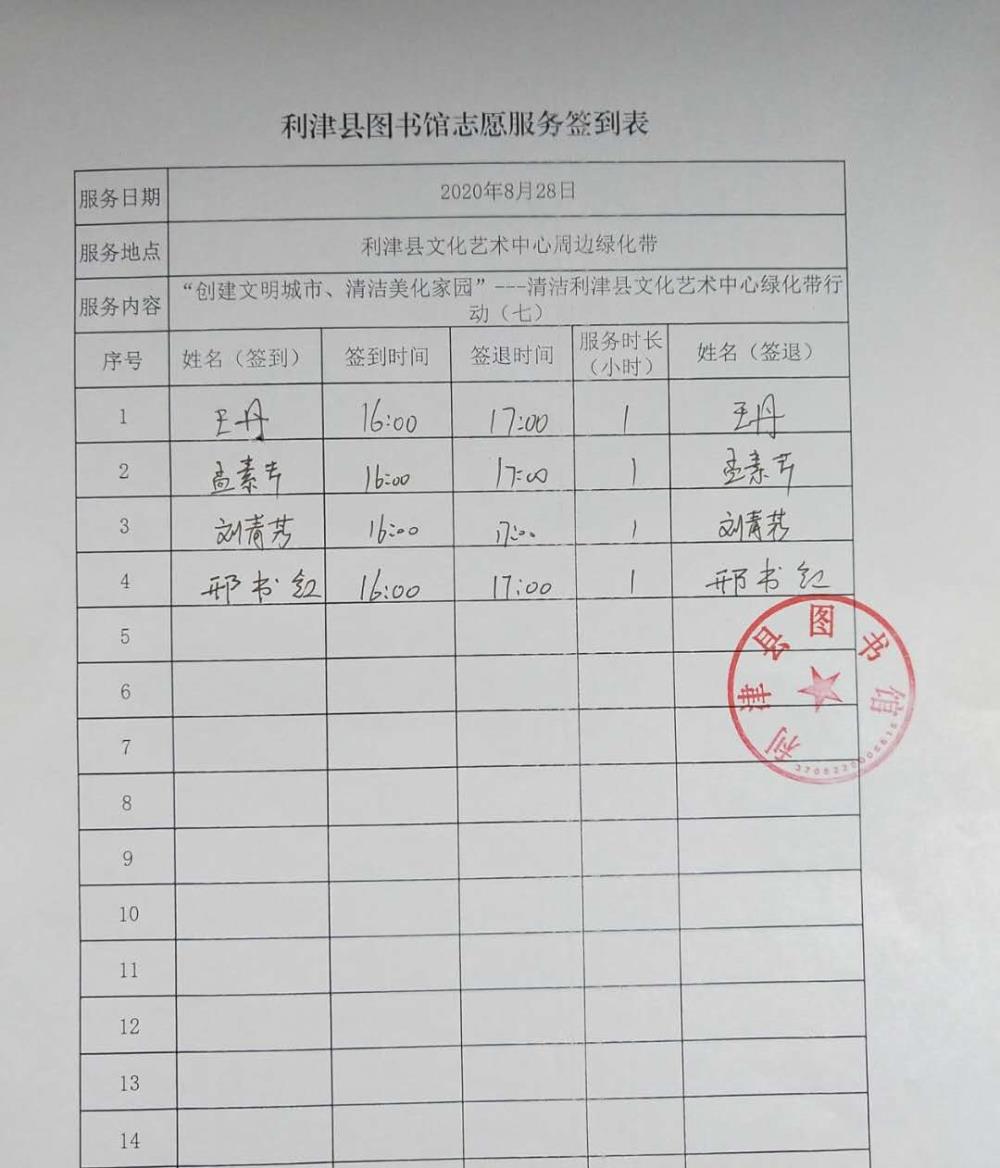 利津县图书馆志愿服务签到表
服务日期 2020年8月28日
服务地点 利津县文化艺术中心周边绿化带
服务内容 “创建文明城市、清洁美化家园”---清洁利津县文化艺术中心绿化带行
动（七）
序号 姓名（签到） 签到时间 签退时间 服务时长（小时） 姓名（签退）
1 王丹 16:00 17:00 1 王丹
2 孟素芳 16:00 17:00 1 孟素芳
3 刘青芳 16:00 17:00 1 刘青芳
4 邢书红 16:00 17:00 1 邢书红
5
6
7
8
9
10
11
12
13
14
利津县图书馆